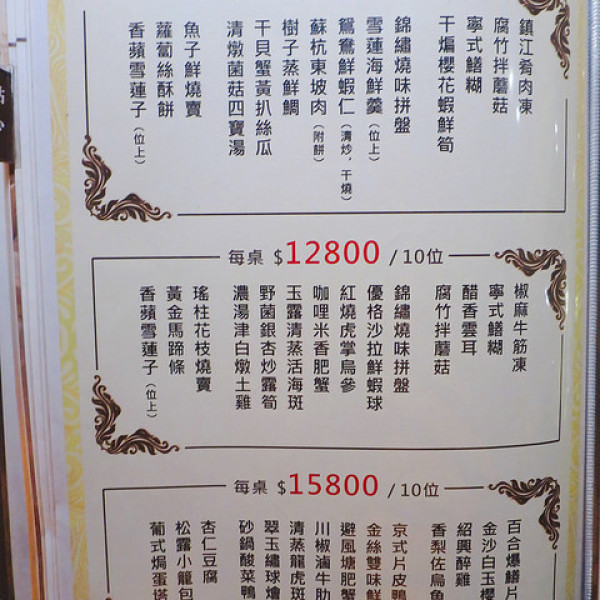 鎮江肴肉凍
腐竹拌蘑菇
寧式鱔糊
干煸櫻花蝦鮮筍
錦繡燒味拼盤
雪蓮海鮮羹（位上）
鴛鴦鮮蝦仁（清炒，干燒）
蘇杭東坡肉（附餅）
樹子蒸鮮鯛
干貝蟹黃扒絲瓜
清燉菌菇四寶湯
魚子鮮燒賣
蘿蔔絲酥餅
香蘋雪蓮子（位上）
每桌 $12800 / 10位
椒麻牛筋凍
寧式鱔糊
醋香雲耳
腐竹拌蘑菇
錦繡燒味拼盤
優格沙拉鮮蝦球
紅燒虎掌烏參
咖哩米香肥蟹
玉露清蒸活海斑
野菌銀杏炒露筍
濃湯津白燉土雞
瑤柱花枝燒賣
黃金馬蹄條
香蘋雪蓮子（位上）
每桌 $15800 / 10位
百合爆鱔片
金沙白玉櫻
紹興醉雞
香梨佐烏魚
京式片皮鴨
金絲雙味鮮
避風塘肥蟹
川椒滷牛肋
清蒸龍虎斑
翠玉繡球燴
砂鍋酸菜鴨
杏仁豆腐
松露小籠包
葡式焗蛋塔